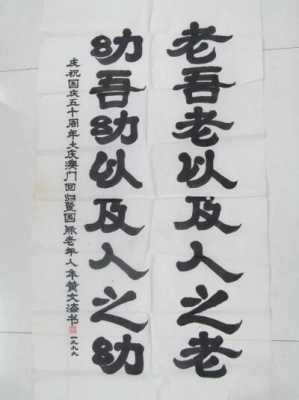 老吾老以及人之老
幼吾幼以及人之幼
庆祝国庆五十周年大庆澳门回归暨国际老年人年黄文涛书一九九九